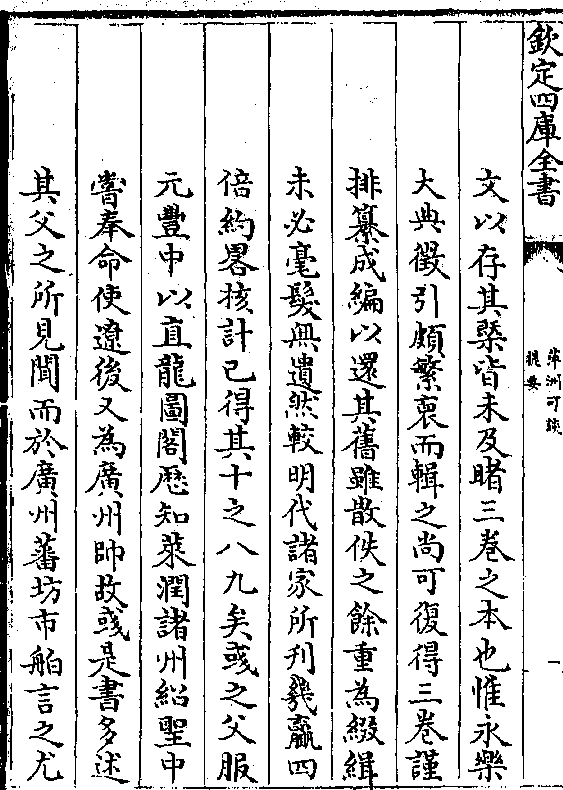 欽定四庫全書
萍洲可談
提要
一
文以存其槩皆未及睹三卷之本也惟永樂
大典徵引頗繁裒而輯之尚可復得三卷謹
排纂成編以還其舊雖散佚之餘重為綴緝
未必毫髮無遺然較明代諸家所刊幾贏四
倍約畧核計已得其十之八九矣彧之父服
元豐中以直龍圖閣歴知萊潤諸州紹聖中
嘗奉命使遼後又為廣州帥故彧是書多述
其父之所見聞而於廣州蕃坊市舶言之尤